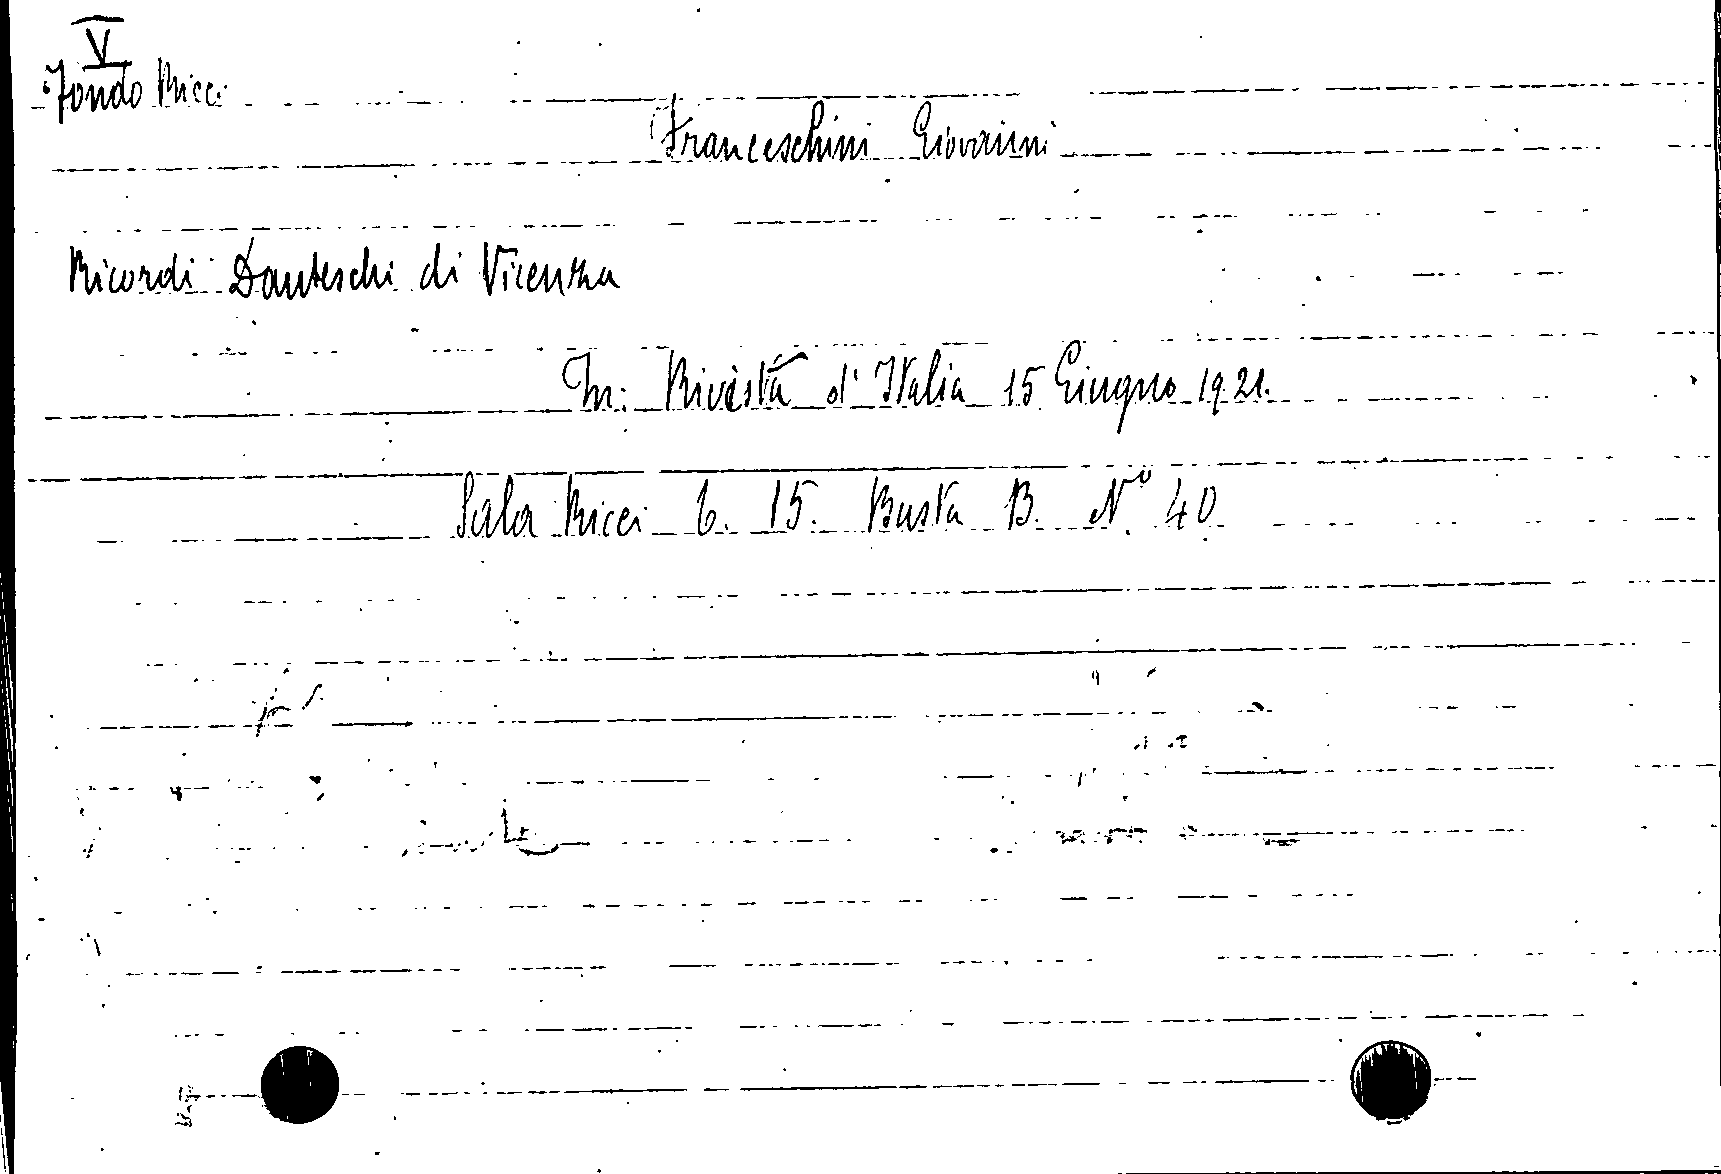 V
Fondo Ricci
Franceschini Giovanni
Ricordi Danteschi di Vicenza
In: Rivista d'Italia 15 Giugno 1921.
Sala Ricci 6. 15. Busta B. N.º 40